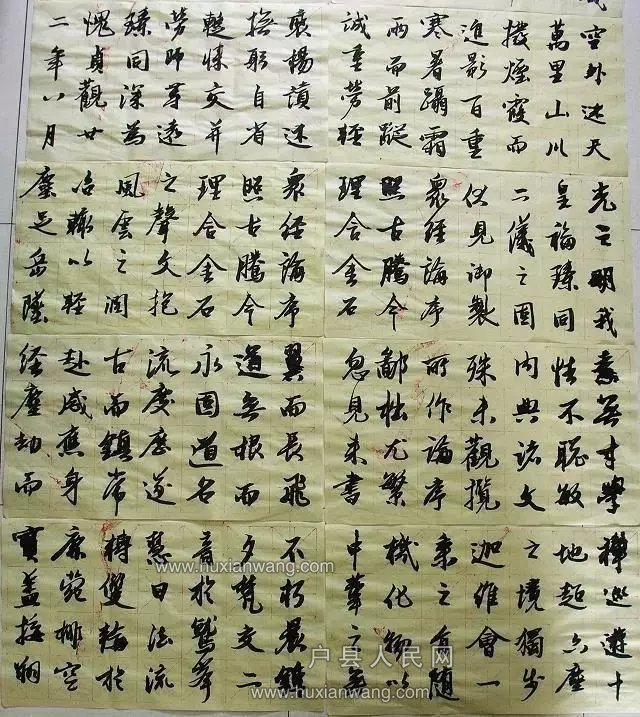 空外迷天
萬里山川
撥煙霞而
進影百重
寒暑躡霜
雨而前蹤
誠重勞輕
褒揚讚述
撫躬自省
慙悚交并
勞師等遠
臻同深為
愧貞觀廿
二年八月
光之明我
皇福臻同
二儀之固
伏見御製
眾經論序
照古騰今
理含金石
眾經論序
照古騰今
理含金石
之聲文抱
風雲之潤
治輒以輕
塵足岳墜
素無才學
性不聰敏
內典諸文
殊未觀攬
所作論序
鄙拙尤繁
忽見來書
翼而長飛
道無根而
永固道名
流慶歷遂
古而鎮常
赴感應身
經塵劫而
禪巡遊十
地超六塵
之境獨步
迦維會一
乘之旨隨
機化物以
中華之無
不朽晨鐘
夕梵交二
音於鷲峯
慧日法流
轉雙輪於
鹿菀排空
寶蓋接翔
www.huxianwang.com
户县人民网
www.huxianwang.com